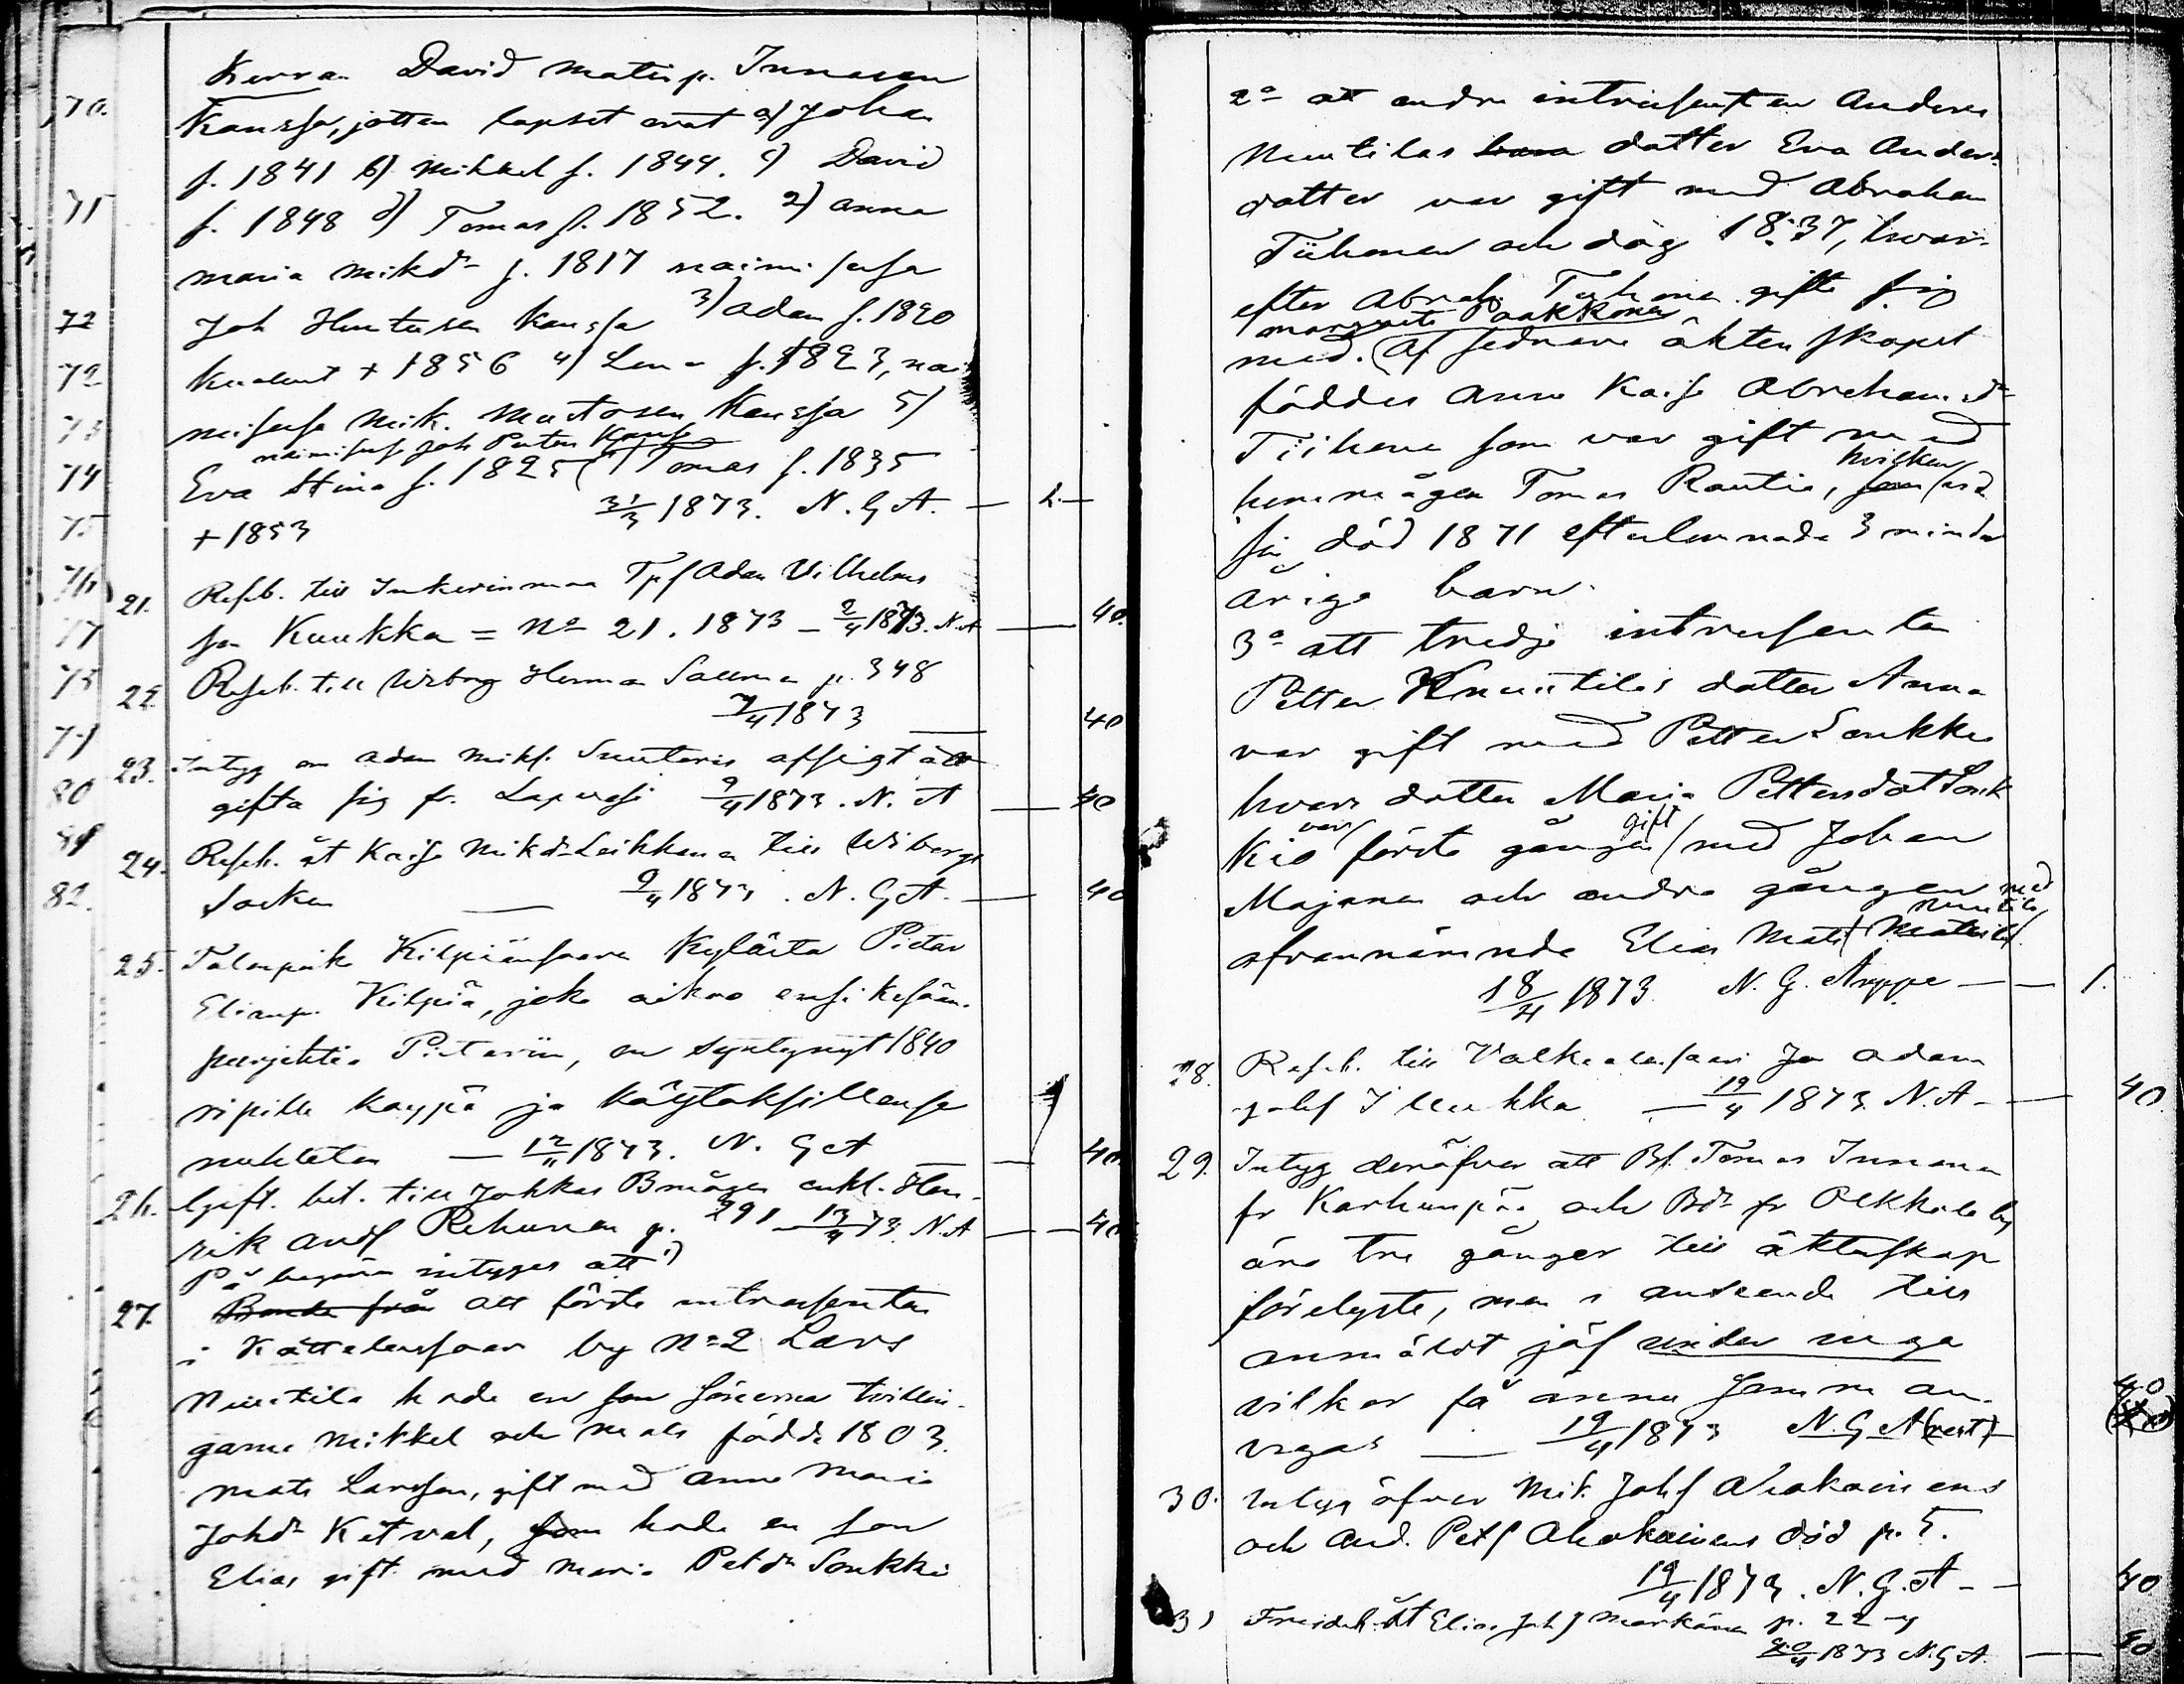 Kerran David Matinp. Innasen
kanssa, jotten lapset ovat a) Johan
f. 1841 b) Mikkel f. 1844. c) David
f. 1848 d) Tomas f. 1852. 2) Anna
Maria Mikdr f. 1817 naimisessa
Joh Huutusen kanssa 3) Adam f. 1820
kuolent + 1856 4) Lena f. 1823, nai
misessa Mik. Mustosen kanssa 5)
naimisessa Joh Puton kanssa
Eva Stina f. 1825 Tomas f. 1835
+ 1853 31/3 1873. N. G A. — 1.—
21. Reseb. till Inkerinmaa Tpf Adam Vilhelms
son Kuukka = No 21. 1873 — 2/4 1873. N. A — 40.
22 Reseb. till Wiborg Herman p. 348
7/4 1873 — 40
23. Intyg om Adam Mikf. Suutaris afsigt att
gifta sig fr. Lapvesi 9/4 1873. N. A — 40
24. Reseb. åt Kaisa Mikdr Leikkanen till Wiborgs
Socken — 9/4 1873. N. G A. — 40
25. Talonpoika Kilpiänsaaren kylästä Pietar
Elianp. Kilpiä, joka aikoo ensi kesään
purjehtia Pietariin, on syntynyt 1840
ripille käypä ja käytöksillensä
nuhteton — 12/4 1873. N. G A — 40
26. Gift. bet. till Johkas Bmågen enkl. Hen-
rik Andf Rehunen p. 291 — 13/4 73. N. A — 40
På begäran intygas att 1)
27. Bonde från att förste intressenten
i Kättelensaari by No 2 Lars
Nuutila hade en son sönerna tvillin-
garne Mikkel och Mats födda 1803.
Mats Larsson, gift med Anna Maria
Johdr Ketval, som hade en son
Elias gift med Maria Petdr Soukki
2o att andre intressenten Anders
Nuutilas dotter Eva Anders
dotter var gift med Abraham
Tiihonen och dog 1837, hvar-
efter Abrah. Tiihonen gifte sig
Margreta Paakkonen
med. Af sednare äktenskapet
föddes Anna Kaisa Abrahamsdr
Tiihonen som var gift med
hvilken
hemmågen Tomas Rautia, som vid
sin död 1871 efterlemnade 3 minder
åriga barn.
3o att tredje intressenten
Petter Knuutilas dotter Anna
var gift med Petter Soukka
hvars dotter Maria Pettersdot Souk
var gift
kio förste gången med Johan
Majanen och andra gången med
Nuutila
ofvannämnda Elias Mats
18/4 1873 N. G. Arppe — — 1.
28. Reseb. till Valkealansaari Jn Adam
Johf Illukka — 19/4 1873. N. A — 40.
29. Intyg deröfver att Bf. Tomas Innanen
fr Karhunpää och Bdr fr Olkkala by
äro tre gånger till äktenskap
förelyste, men i anseende till
anmäldt jäf under inga
vilkor få ännu samman
vigas — 19/4 1873 N. G A (rest) 40
30. Intyg öfver Mik. Johf Ahokainens
och And. Petf Ahokainens död p. 5.
19/4 1873. N. G. A — 40
31 Fredsb. åt Elias Johf Markkänen p. 22
20/4 1873 N. G A. — 40
70.
71
72
72
73
74
75
76
77
78
79
80
81
82.